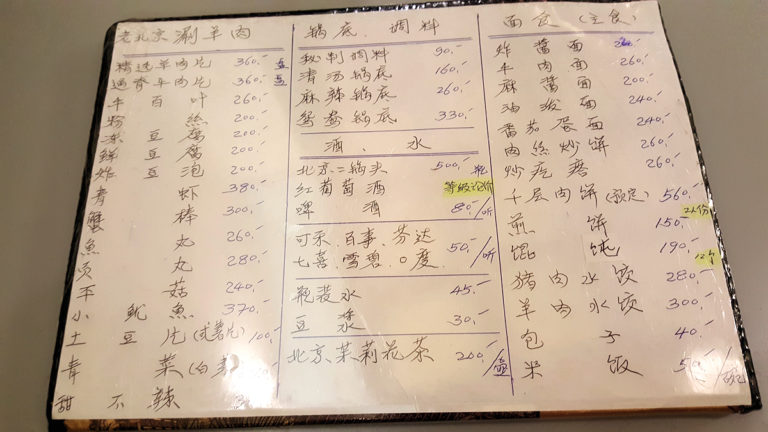 老北京涮羊肉
精选羊肉片 360.- 盘
通脊羊肉片 360.- 盘
牛百叶 260.-
粉丝 200.-
冻豆腐 200.-
鲜豆腐 200.-
炸豆泡 200.-
青虾 380.-
蟹棒 300.-
魚丸 260.-
贡丸 280.-
平菇 240.-
小魷魚 370.-
土豆片(或薯片) 100.-
青菜(白
甜不辣
锅底、调料
秘制调料 90.-
清汤锅底 160.-
麻辣锅底 260.-
鸳鸯锅底 330.-
酒、水
北京二锅头 500.- 瓶
红葡萄酒 等级论价
啤酒 80.-/听
可乐、百事、芬达
七喜、雪碧、0度、 50.-/听
瓶装水 45.-
豆浆 30.-
北京茉莉花茶 200.-/壶
面食(主食)
炸酱面
牛肉面 260.-
麻酱面 200.-
油泼面 240.-
番茄蛋面 240.-
肉丝炒饼 260.-
炒疙瘩 260.-
千层肉饼(预定) 560.- 2人份
煎饼 150.-
馄饨 190.- 12个
猪肉水饺 280.-
羊肉水饺 300.-
包子 40.-
米饭 50.-/碗